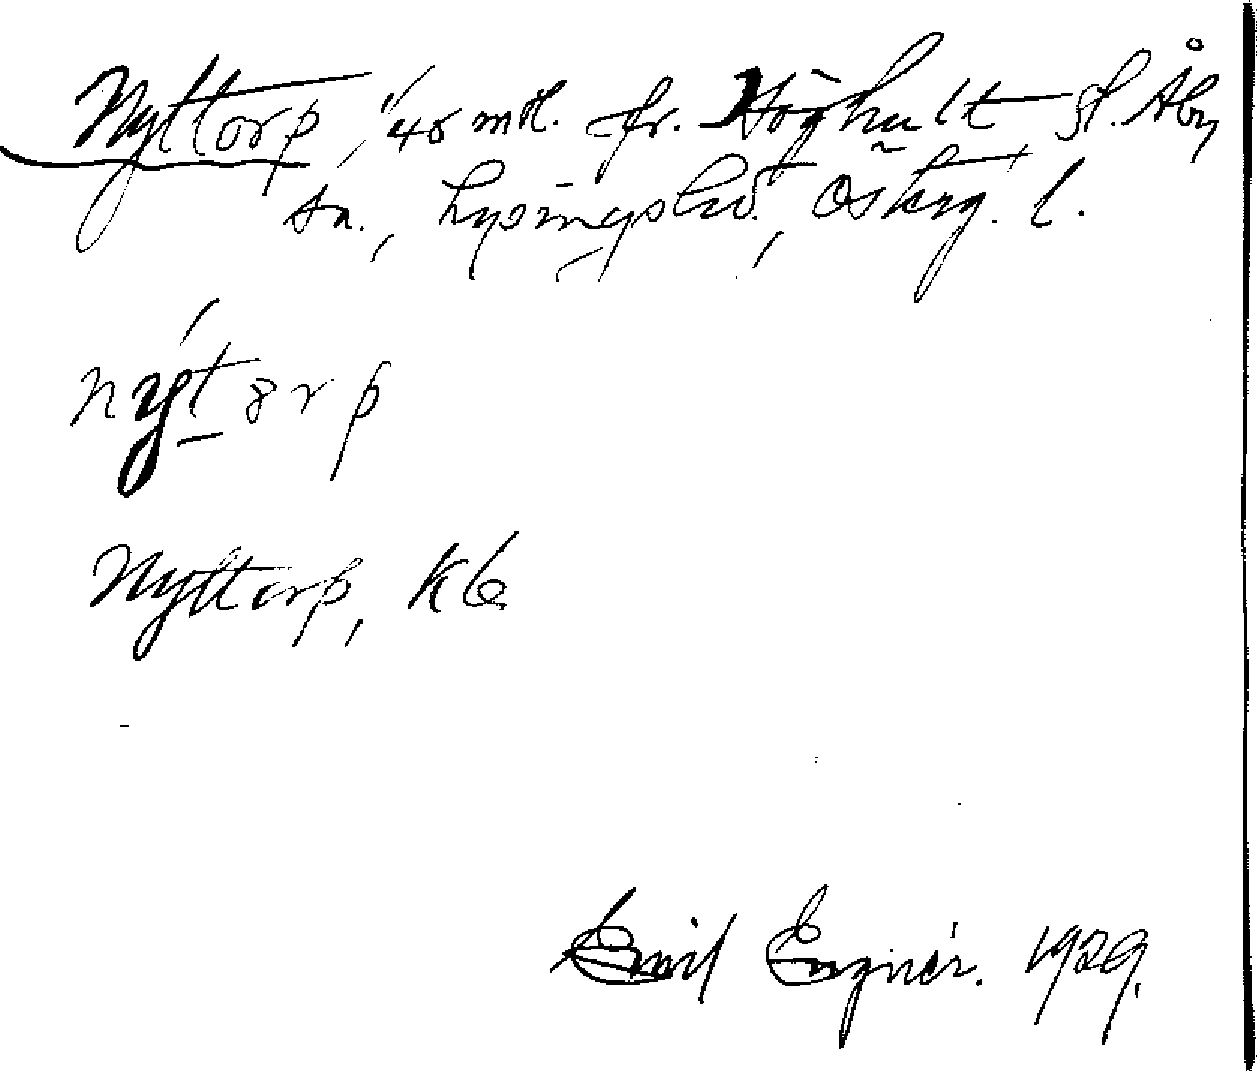 Nyttorp, 1/48 mtl. fr. Höghult St. Åby
sn., Lysings hd., Östерg. l.
nýt8rp
Nyttorp, K6
Emil Engnér. 1929.